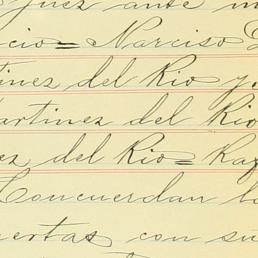 Juez ante m
cio= Narciso
tinez del Rio y
artinez del Rio
ez del Rio= Raf
Concuerdan l
uertas con su